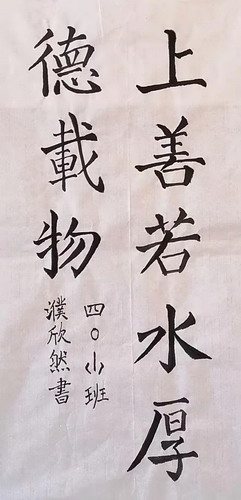 上善若水厚
德載物
四〇小班
濮欣然書